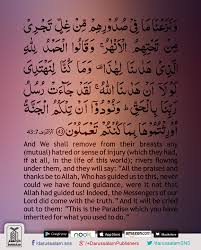 وَنَزَعْنَا مَا فِي صُدُورِهِم مِّنْ غِلٍّ تَجْرِي
مِن تَحْتِهِمُ ٱلْأَنْهَٰرُ ۖ وَقَالُوا۟ ٱلْحَمْدُ لِلَّهِ
ٱلَّذِي هَدَىٰنَا لِهَٰذَا وَمَا كُنَّا لِنَهْتَدِيَ
لَوْلَآ أَنْ هَدَىٰنَا ٱللَّهُ ۖ لَقَدْ جَآءَتْ رُسُلُ
رَبِّنَا بِٱلْحَقِّ ۖ وَنُودُوٓا۟ أَن تِلْكُمُ ٱلْجَنَّةُ
أُورِثْتُمُوهَا بِمَا كُنتُمْ تَعْمَلُونَ (43) 43:7
And We shall remove from their breasts any
(mutual) hatred or sense of injury (which they had,
if at all, in the life of this world); rivers flowing
under them, and they will say: "All the praises and
thanks be to Allah, Who has guided us to this, never
could we have found guidance, were it not that
Allah had guided us! Indeed, the Messengers of our
Lord did come with the truth." And it will be cried
out to them: "This is the Paradise which you have
inherited for what you used to do."
DARUSSALAM
/darussalam.sns
/DarussalamPublishers
/darussalamsns